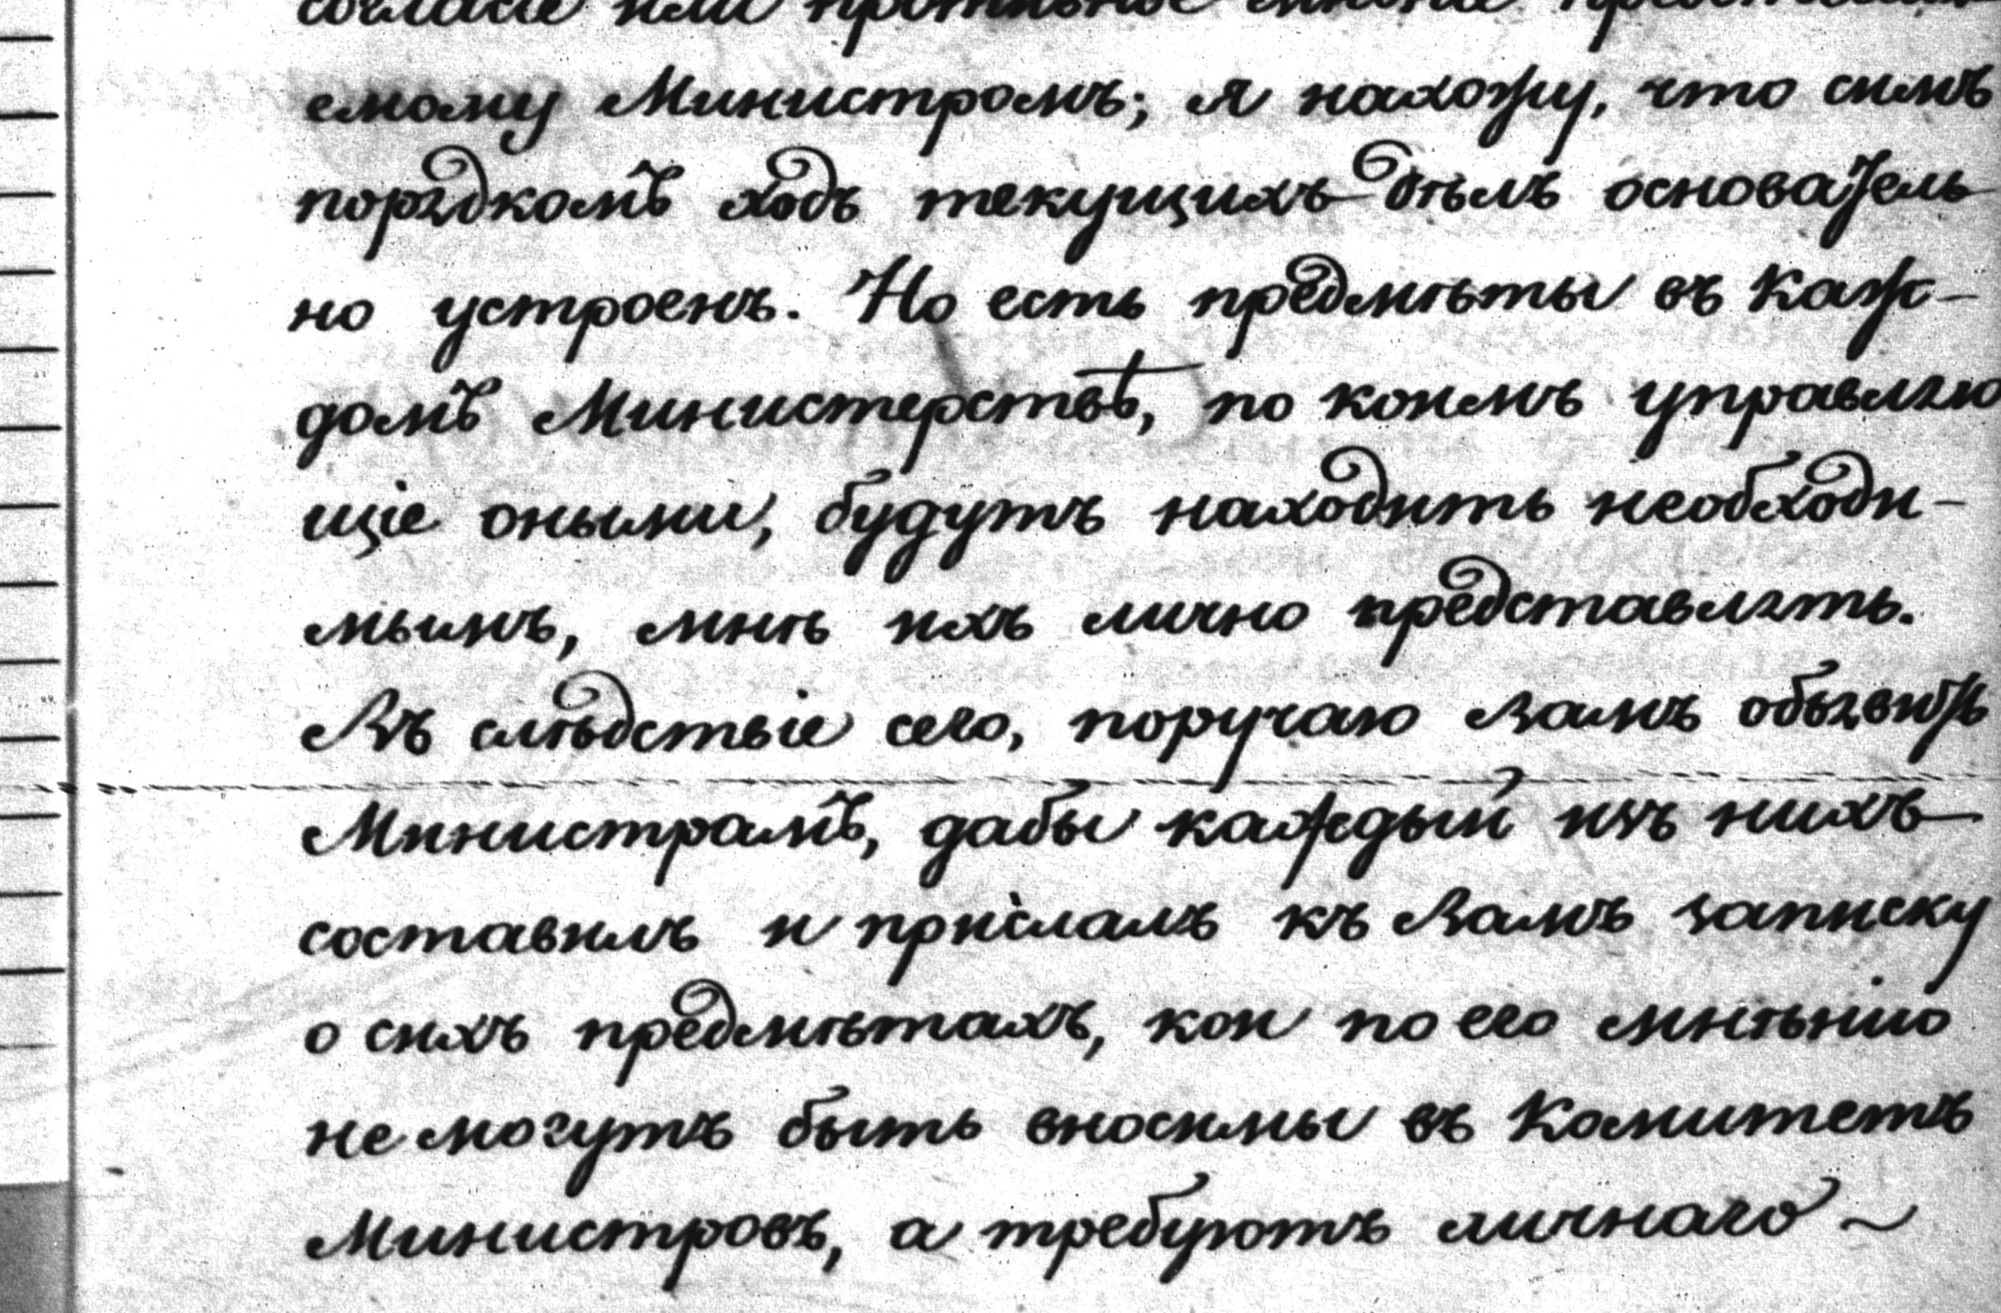 согласіе или противное мнѣніе
емому Министромъ; я нахожу, что симъ
порядкомъ ходъ текущихъ дѣлъ основатель
но устроенъ. Но есть предмѣты въ каж-
домъ Министерствѣ, по коимъ управляю
щіе оными, будутъ находить необходи-
мымъ, мнѣ ихъ лично представлять.
Въ слѣдствіе сего, поручаю Вамъ объявить
Министрамъ, дабы каждый изъ нихъ
составилъ и прислалъ къ Вамъ записку
о сихъ предмѣтахъ, кои по его мнѣнію
не могутъ быть вносимы въ Комитетъ
Министровъ, а требуютъ личнаго